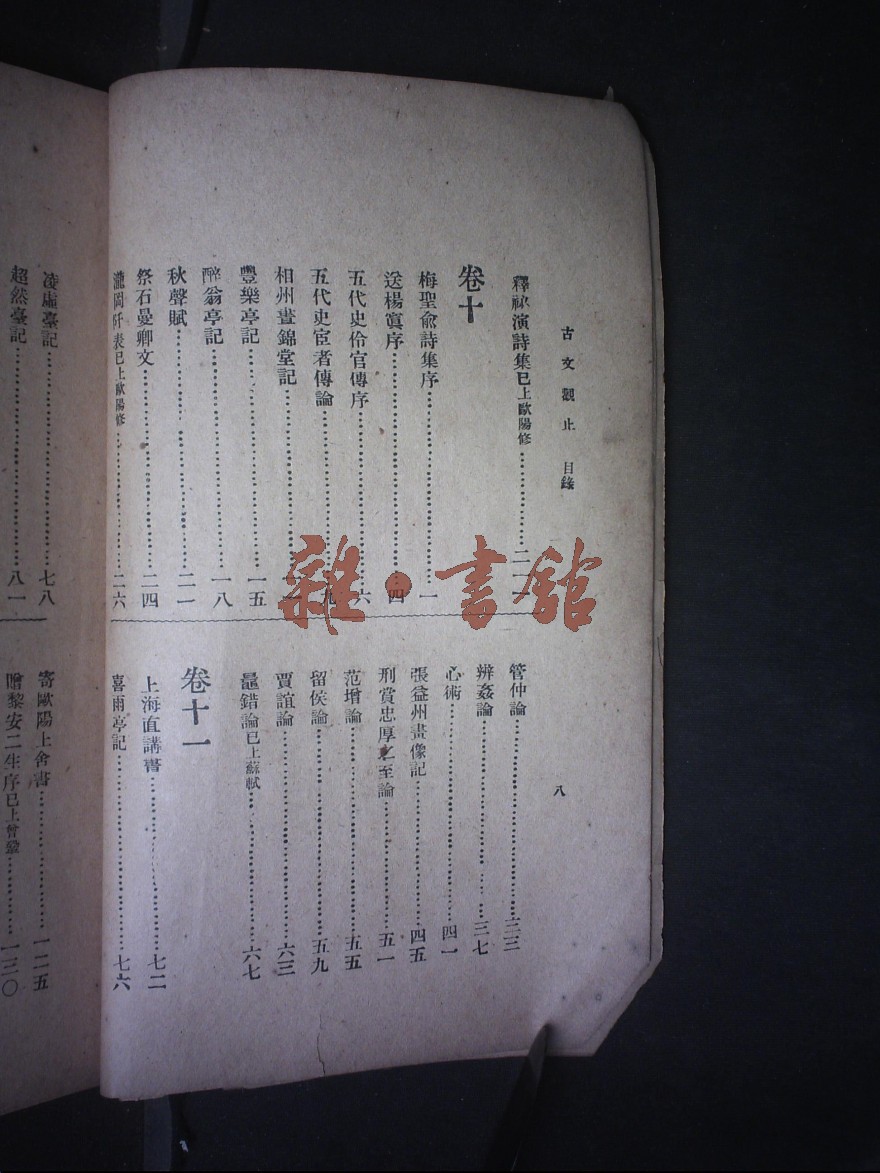 古文觀止 目錄
八
釋祕演詩集已上歐陽修……二一一
卷十
梅聖俞詩集序……一
送楊寘序……四
五代史伶官傳序……六
五代史宦者傳論……九
相州晝錦堂記……
豐樂亭記……一五
醉翁亭記……一八
秋聲賦……二一
祭石曼卿文……二四
瀧岡阡表已上歐陽修……二六
管仲論……三三
辨姦論……三七
心術……四一
張益州畫像記……四五
刑賞忠厚之至論……五一
范增論……五五
留侯論……五九
賈誼論……六三
鼂錯論已上蘇軾……六七
卷十一
上海直講書……七二
喜雨亭記……七六
凌虛臺記……七八
超然臺記……八一
寄歐陽上舍書……一二五
贈黎安二生序已上曾鞏……一三〇
雜·書舘